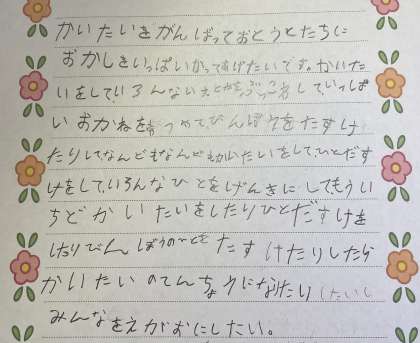 かいたいをがんばっておとうとたちに
おかしをいっぱいかってあげたいです。かいた
いをして、いろんないえとかをぶっこわしていっぱ
いおかねをあつめて、びんぼうをたすけ
たりしてなんどもなんどもかいたいをして、ひとだす
けをして、いろんなひとをげんきにしてもうい
ちどかいたいをしたりひとだすけを
したりびんぼうのひとをたすけたりしたら
かいたいのてんちょうになったり したいし
みんなをえがおにしたい。